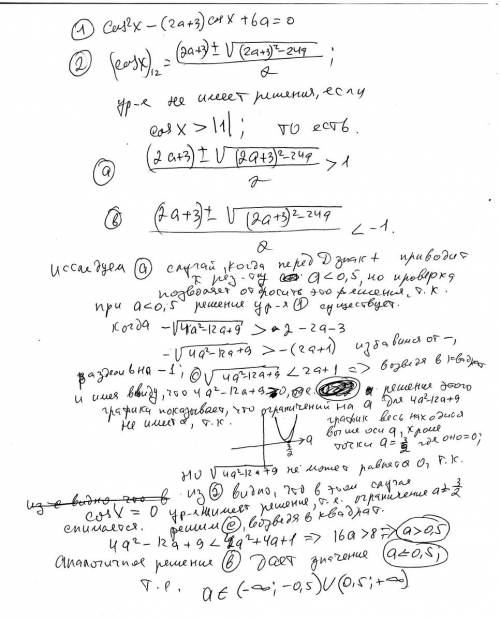 ① cos²x − (2a+3)cosx + 6a = 0
② (cosx)₁₂ = ((2a+3) ± √((2a+3)² − 24a)) / 2 ;
ур-е не имеет решения, если
cosx > |1| ; то есть.
ⓐ ((2a+3) ± √((2a+3)² − 24a)) / 2 > 1
ⓑ ((2a+3) ± √((2a+3)² − 24a)) / 2 < −1.
исследуем ⓐ случай, когда перед D знак + приводит
к рез-ту a<0,5, но проверка
позволяет отбросить это решения, т.к.
при a<0,5 решение ур-я ① существует.
когда −√(4a²−12a+9) > 2−2a−3
−√(4a²−12a+9) > −(2a+1) избавимся от −,
на −1; √(4a²−12a+9) < 2a+1 => возведя в квадрат
и имея ввиду, что 4a²−12a+9 решение этого
графика показывает, что ограничений на a для 4a²−12a+9
не имеется, т.к. график весь находится
выше оси a, кроме
точки a = 3/2 где оно = 0;
a
3/2
но √(4a²−12a+9) не может равняется 0, т.к.
из ② видно, что в этом случае
cosx = 0 ур-е имеет решение, т.е. ограничение a ≠ 3/2
снимается. решим ⓒ, возведя в квадрат.
4a² − 12a + 9 < 4a² + 4a + 1 => 16a > 8 => a > 0,5
Аналогичное решение ⓑ дает значение a < 0,5;
т.е. a ∈ (−∞; −0,5) ∪ (0,5; +∞)